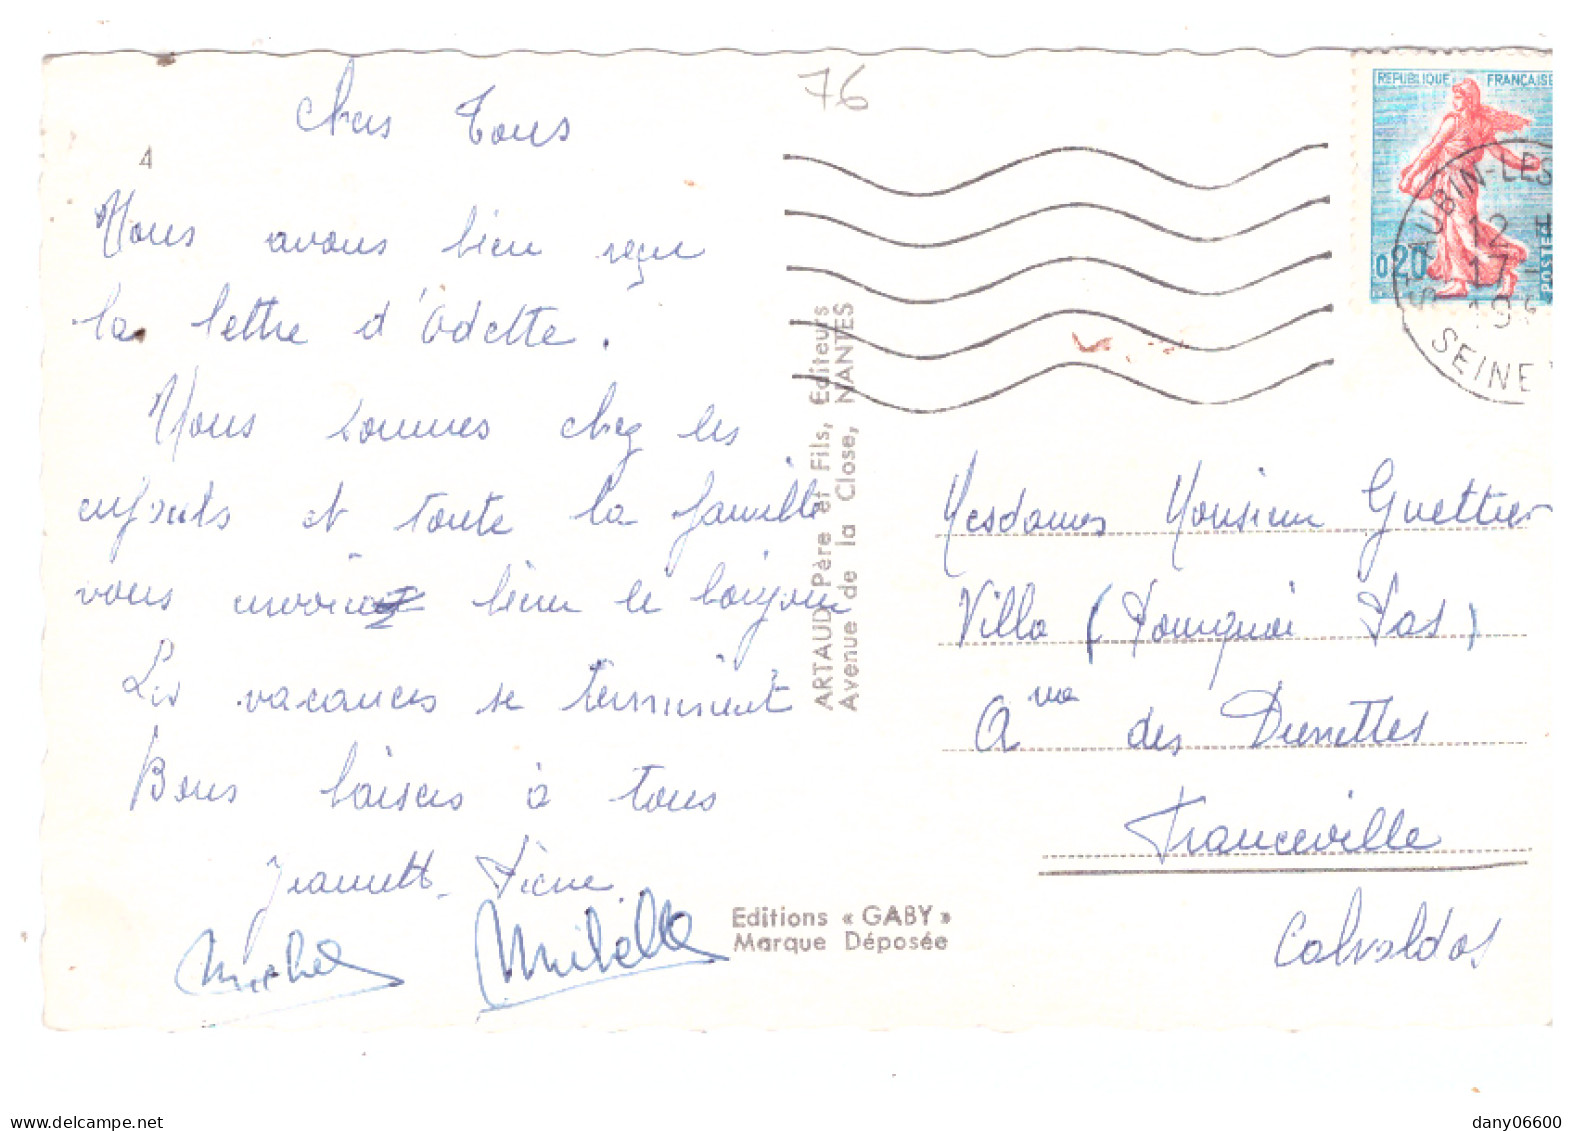 76
4
Chers Tous
Nous avons bien reçu
la lettre d'Odette.
Nous sommes chez les
enfants et toute la famille
vous envoie bien le bonjour
Les vacances se terminent
Bons baisers à tous
Jeannette - Pierre
Michel Michelle
Editions « GABY »
Marque Déposée
ARTAUD Père et Fils, Editeurs
Avenue de la Close, NANTES
REPUBLIQUE FRANCAISE
0,20
POSTES
ST-AUBIN-LES
12 -
17 -
19
SEINE
Mesdames Monsieur Guettier
Villa (Pourquoi Pas)
Avenue des
Franceville
Calvados
dany06600